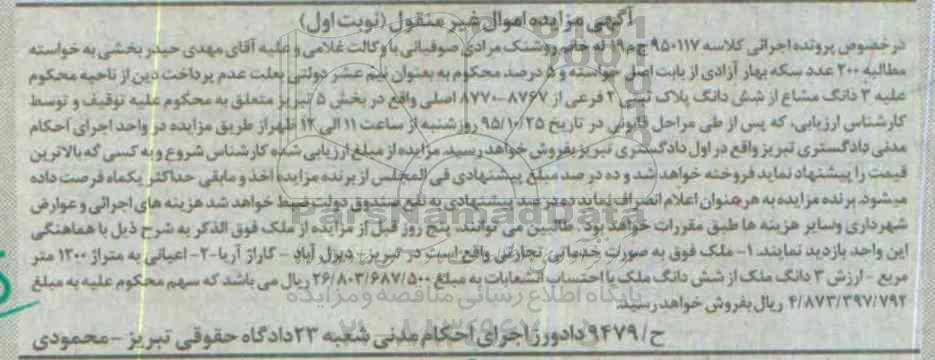 آگهی مزایده اموال غیر منقول (نوبت اول)
درخصوص پرونده اجرائی کلاسه ۹۵۰۱۱۷ ج م ۱۹ له خانم روشنک مرادی صوفیانی با وکالت غلامی و علیه آقای مهدی حیدر بخشی به خواسته
مطالبه ۲۰۰ عدد سکه بهار آزادی از بابت اصل خواسته و ۵ درصد محکوم به بعنوان نیم عشر دولتی بعلت عدم پرداخت دین از ناحیه محکوم
علیه ۳ دانگ مشاع از شش دانگ پلاک ثبتی ۲ فرعی از ۸۷۶۷-۸۷۷۰ اصلی واقع در بخش ۵ تبریز متعلق به محکوم علیه توقیف و توسط
کارشناس ارزیابی، که پس از طی مراحل قانونی در تاریخ ۹۵/۱۰/۲۵ روز شنبه از ساعت ۱۱ الی ۱۲ ظهر از طریق مزایده در واحد اجرای احکام
مدنی دادگستری تبریز واقع در اول دادگستری تبریز بفروش خواهد رسید. مزایده از مبلغ ارزیابی شده کارشناس شروع و به کسی که بالاترین
قیمت را پیشنهاد نماید فروخته خواهد شد و ده در صد مبلغ پیشنهادی فی المجلس از برنده مزایده اخذ و مابقی حداکثر یکماه فرصت داده
میشود. برنده مزایده به هر عنوان اعلام انصراف نماید ده در صد پیشنهادی به نفع صندوق دولت ضبط خواهد شد هزینه های اجرائی و عوارض
شهرداری و سایر هزینه ها طبق مقررات خواهد بود. طالبین می توانند، پنج روز قبل از مزایده از ملک فوق الذکر به شرح ذیل با هماهنگی
این واحد بازدید نمایند. ۱- ملک فوق به صورت خدماتی تجارتی واقع است در تبریز- دیزل آباد - گاراژ آریا -۲- اعیانی به متراژ ۱۳۰۰ متر
مربع - ارزش ۳ دانگ ملک از شش دانگ ملک با احتساب انشعابات به مبلغ ۲۶/۸۰۳/۶۸۷/۵۰۰ ریال می باشد که سهم محکوم علیه به مبلغ
۴/۸۷۳/۳۹۷/۷۹۲ ریال بفروش خواهد رسید.
ح/۹۴۷۹ دادورز اجرای احکام مدنی شعبه ۲۳ دادگاه حقوقی تبریز - محمودی
ParsNamadData
پایگاه اطلاع رسانی مناقصه و مزایده